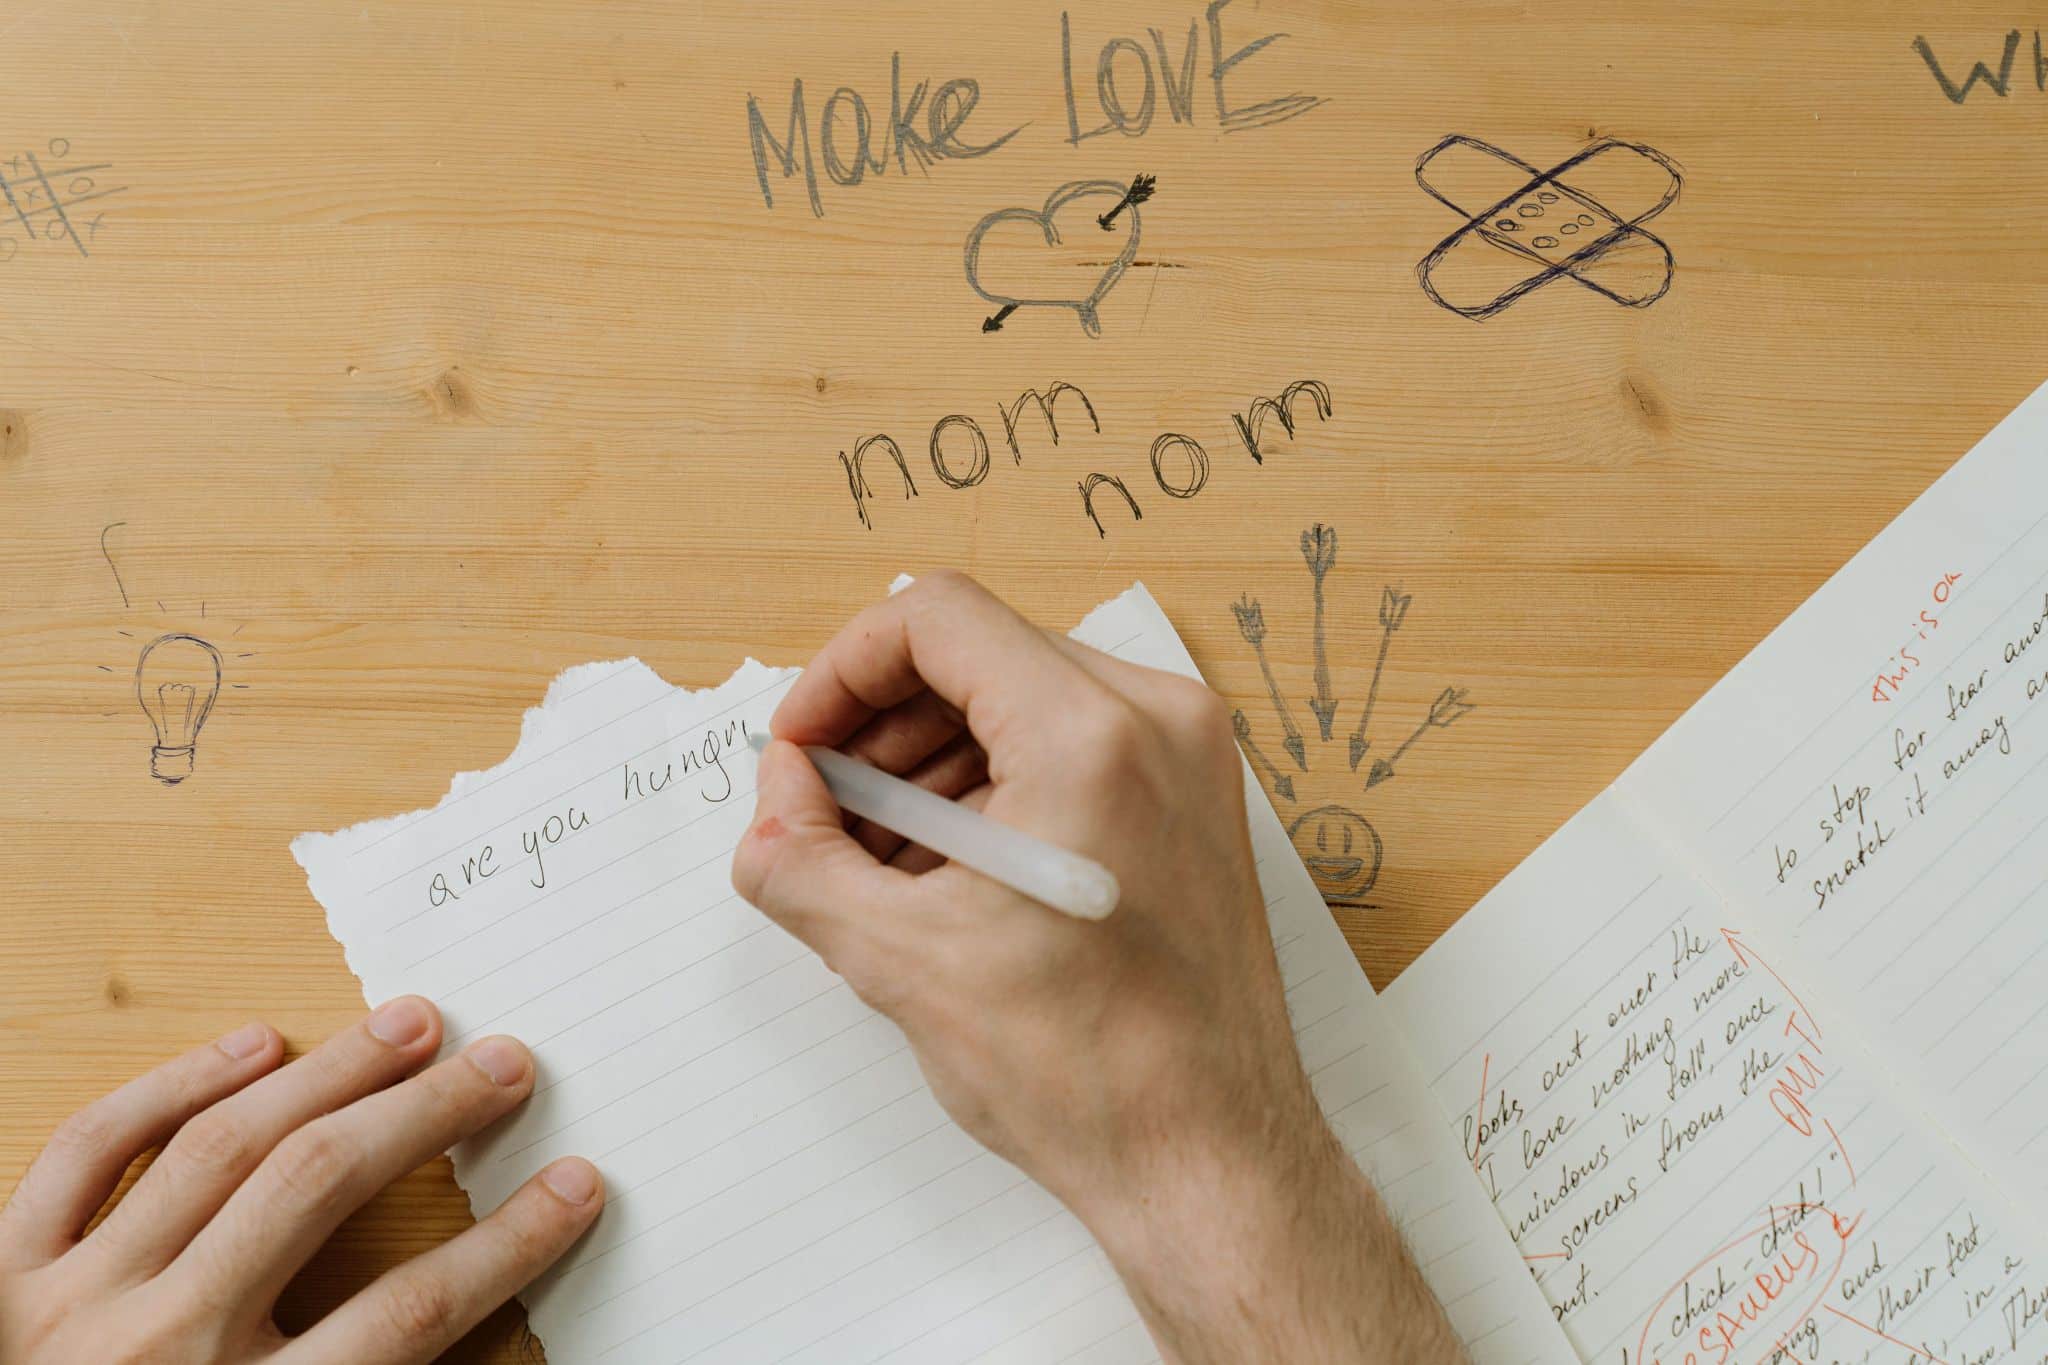 Make LOVE
nom
nom
x o
x o
o o x
are you hungr
this is on
to stop for fear
snatch it away
looks out over the
I love nothing more
windows in fall, once
screens from the
out.
OMIT
chick - chick!"
and
their feet
in a
They